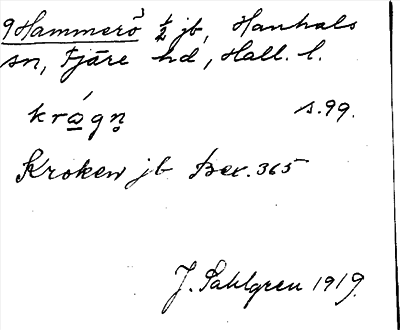 9 Hammerö 1/2 jb, Hanhals
sn, Fjäre hd, Hall. l.
krågn s. 99.
Kroken jb Bex. 365
J. Sahlgren 1919.